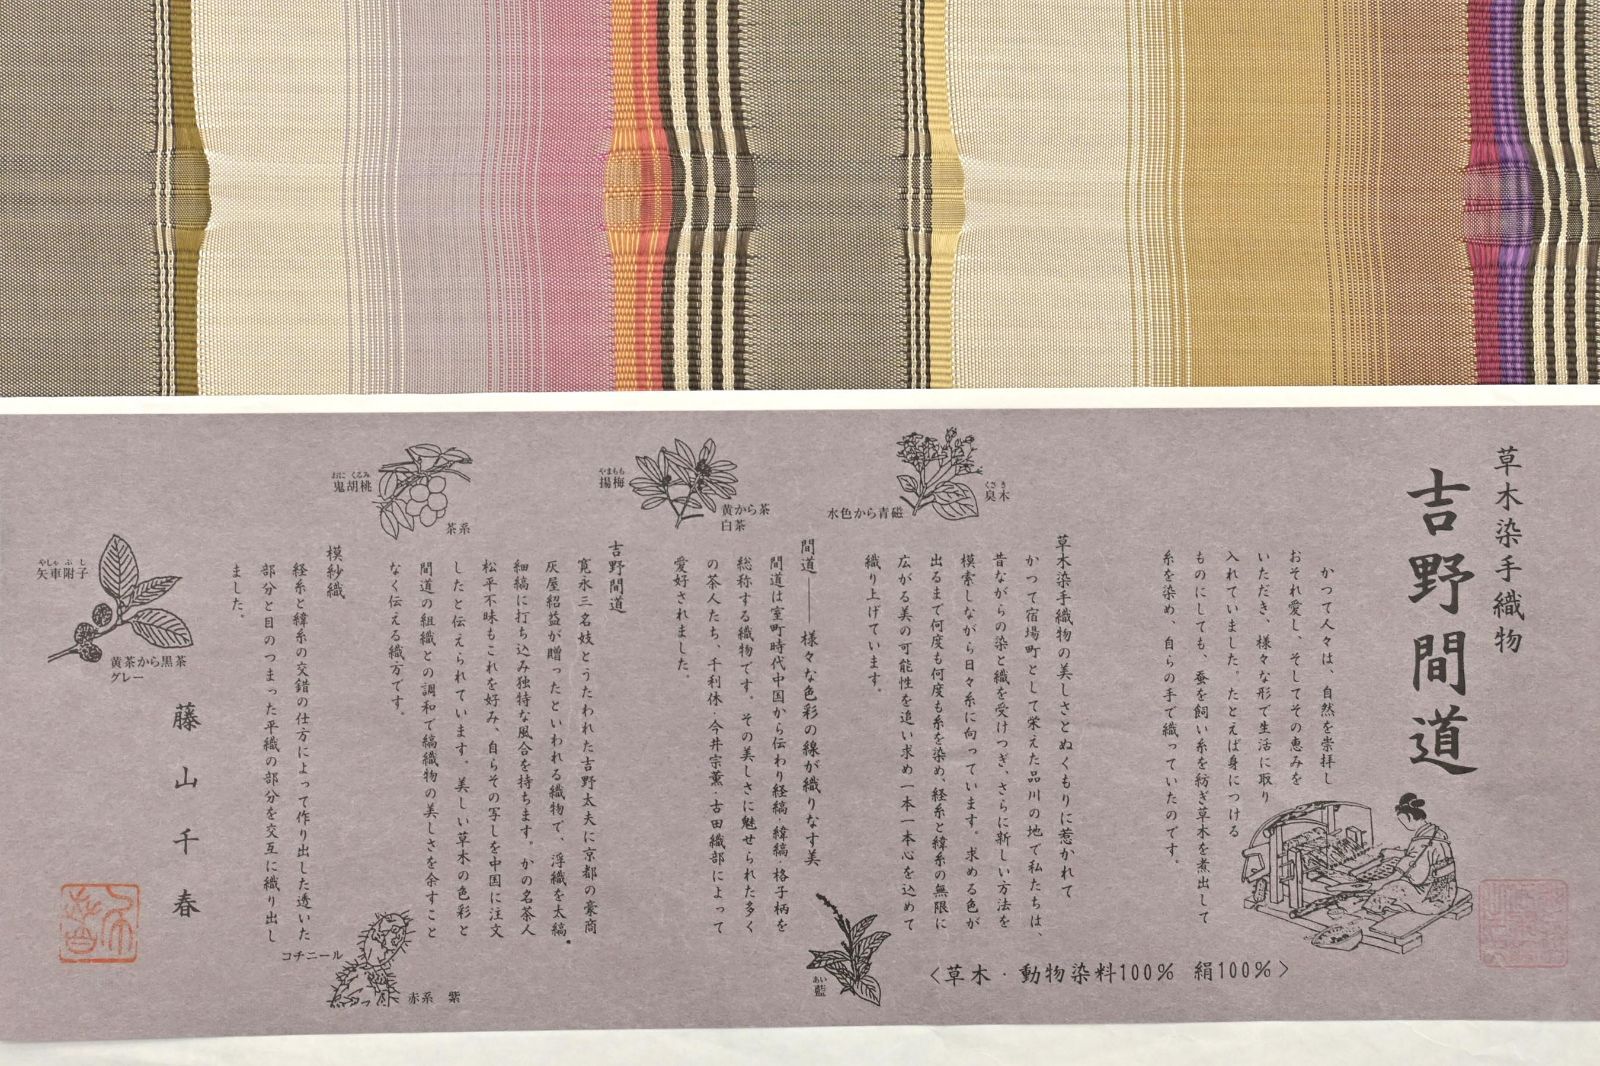 草木染手織物
吉野間道
かつて人々は、自然を崇拝し
おそれ愛し、そしてその恵みを
いただき、様々な形で生活に取り
入れていました。たとえば身につける
ものにしても、蚕を飼い糸を紡ぎ草木を煮出して
糸を染め、自らの手で織っていたのです。
草木染手織物の美しさとぬくもりに惹かれて
かつて宿場町として栄えた品川の地で私たちは、
昔ながらの染と織を受けつぎ、さらに新しい方法を
模索しながら日々糸に向っています。求める色が
出るまで何度も何度も糸を染め、経糸と緯糸の無限に
広がる美の可能性を追い求め一本一本心を込めて
織り上げています。
〈草木・動物染料100% 絹100%〉
くさ き
臭木
水色から青磁
あい
藍
間道――様々な色彩の線が織りなす美
間道は室町時代中国から伝わり経縞・緯縞・格子柄を
総称する織物です。その美しさに魅せられた多く
の茶人たち、千利休・今井宗薫・古田織部によって
愛好されました。
やまもも
揚梅
黄から茶
白茶
吉野間道
寛永三名妓とうたわれた吉野太夫に京都の豪商
灰屋紹益が贈ったといわれる織物で、浮織を太縞・
細縞に打ち込み独特な風合を持ちます。かの名茶人
松平不昧もこれを好み、自らその写しを中国に注文
したと伝えられています。美しい草木の色彩と
間道の組織との調和で縞織物の美しさを余すこと
なく伝える織方です。
おに くるみ
鬼胡桃
茶系
コチニール
赤系 紫
模紗織
経糸と緯糸の交錯の仕方によって作り出した透いた
部分と目のつまった平織の部分を交互に織り出し
ました。
やしゃ ぶ し
矢車附子
黄茶から黒茶
グレー
藤山千春